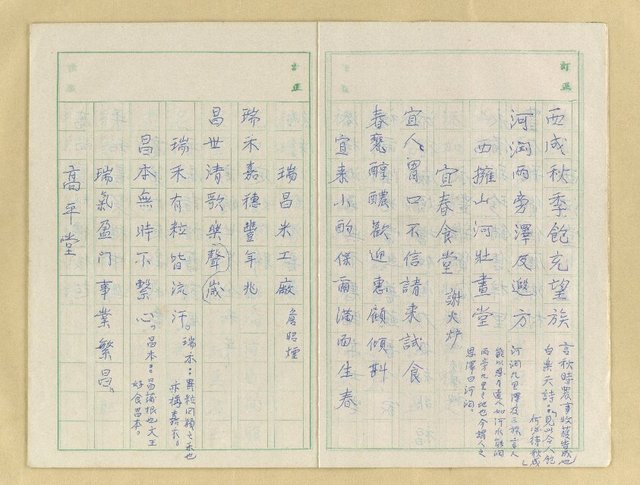 西成秋季飽充望族
言秋時農事收穫告成也
白樂天詩：「見此令人飽
何必待秋成」
河潤兩旁澤及遐方
河潤九里澤及三族言人
能以恩施遠人如河水能潤
兩旁九里之地也今謂人之
恩澤曰河潤。
西擁山河壯畫堂
宜春食堂 謝火炉
宜人胃口不信請來試食
春甕醇醲歡迎惠顧傾斟
宜春小酌保爾滿面生春
瑞昌米工廠 詹昭煙
瑞禾嘉穗豐年兆
昌世清歌樂聲歲
瑞禾有粒皆流汗。
瑞禾：異粒同穎之禾也
亦稱嘉禾。
昌本無時不繫心。
昌本：昌蒲根也文王
好食昌本。
瑞氣盈門事業繁昌。
高平堂
訂正
訂正